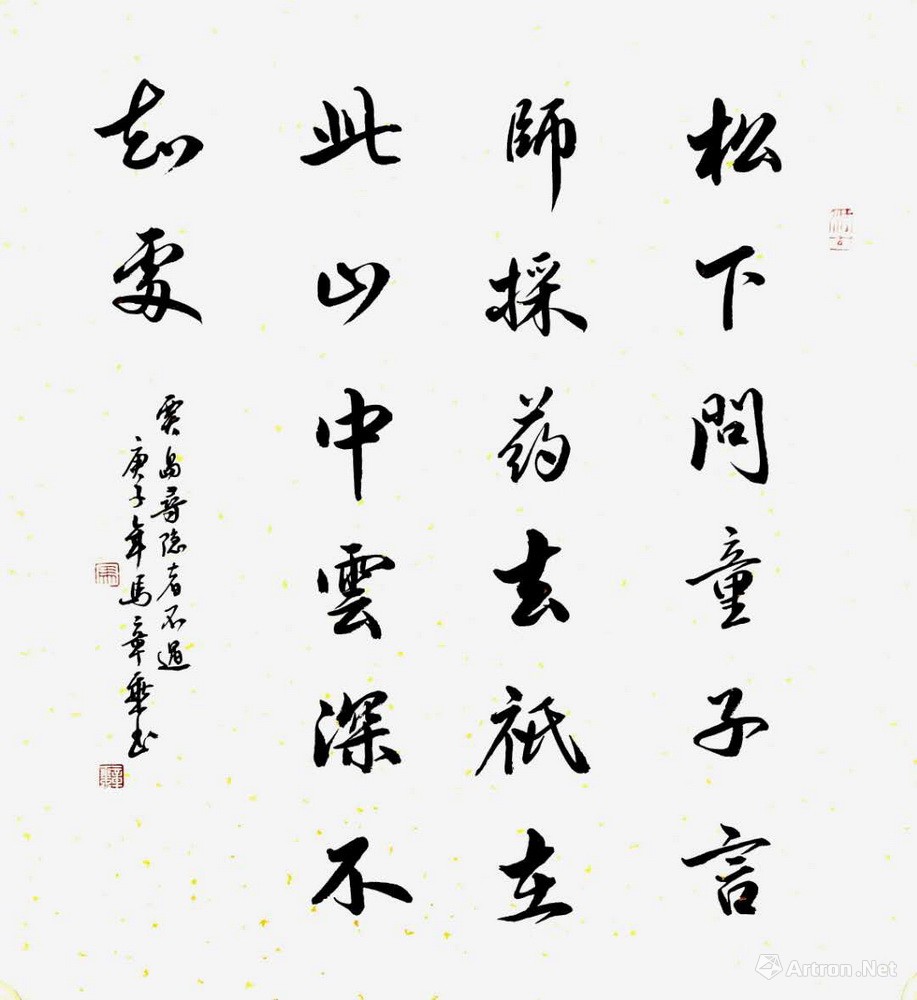 松下問童子言
師採药去祇在
此山中雲深不
知處
賈島尋隐者不遇
庚子年馬章乘书
Artron.Net